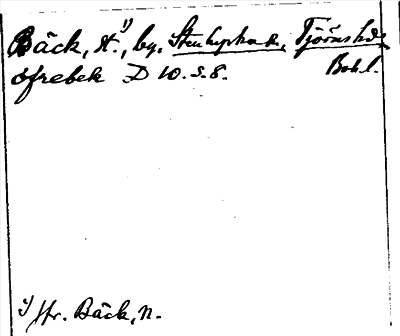 Bäck, St.¹⁾, by, Stenkyrka sn, Tjörns hd
öfrebek D 10.3.8. Boh.l.
¹⁾ Jfr. Bäck, N.